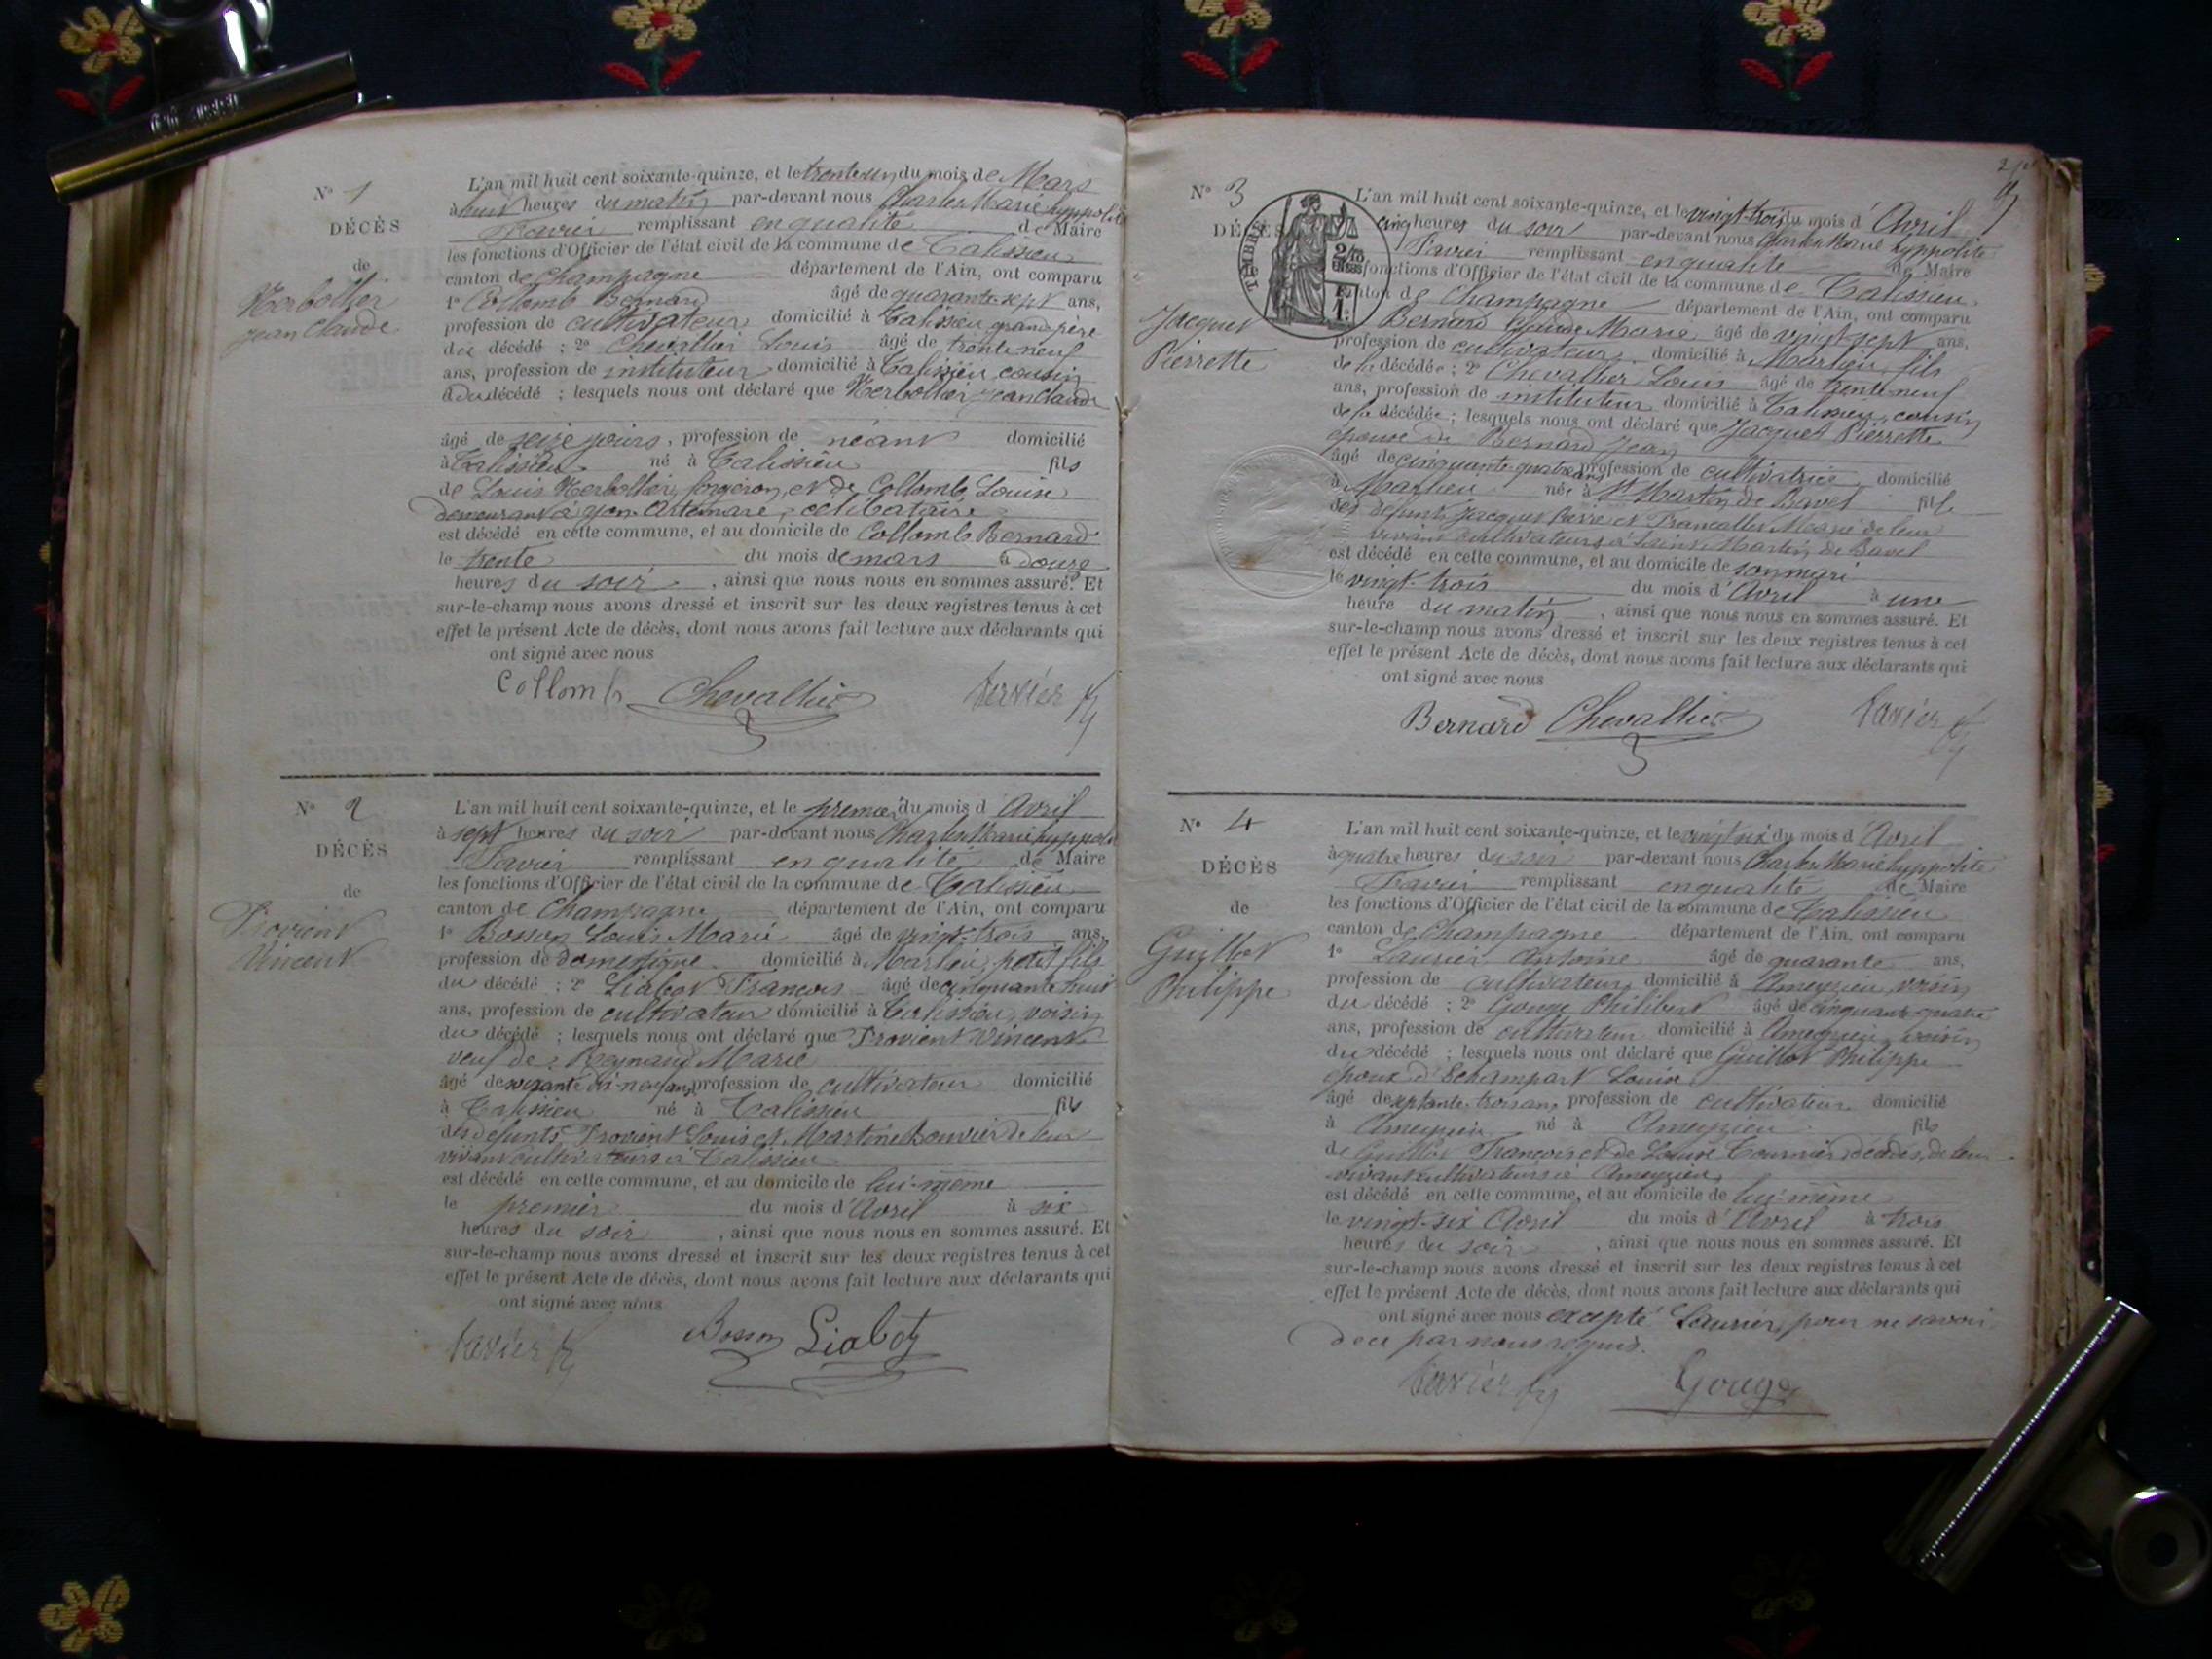 N° 1
DÉCÈS
de
Herbollier
Jean Claude
L'an mil huit cent soixante-quinze, et le trente un du mois de Mars
à huit heures du matin par-devant nous Charles Marie hyppolite
Tavier remplissant en qualité de Maire
les fonctions d'Officier de l'état civil de la commune de Talissieu
canton de Champagne département de l'Ain, ont comparu
1° Collomb Bernard âgé de quarante-sept ans,
profession de cultivateur domicilié à Talissieu grand-père
du décédé ; 2° Chevallier Louis âgé de trente neuf
ans, profession de instituteur domicilié à Talissieu, cousin
du décédé ; lesquels nous ont déclaré que Herbollier Jean Claude
âgé de seize jours, profession de néant domicilié
à Talissieu né à Talissieu fils
de Louis Herbollier, forgeron, et de Collomb Louise
demeurant à yon-Artemare, célibataire
est décédé en cette commune, et au domicile de Collomb Bernard
le trente du mois de mars à douze
heures du soir, ainsi que nous nous en sommes assuré. Et
sur-le-champ nous avons dressé et inscrit sur les deux registres tenus à cet
effet le présent Acte de décès, dont nous avons fait lecture aux déclarants qui
ont signé avec nous
Collomb Chevallier Tavier
N° 2
DÉCÈS
de
Provient
Vincent
L'an mil huit cent soixante-quinze, et le premier du mois d'Avril
à sept heures du soir par-devant nous Charles Marie hyppolite
Tavier remplissant en qualité de Maire
les fonctions d'Officier de l'état civil de la commune de Talissieu
canton de Champagne département de l'Ain, ont comparu
1° Bosson Louis Marie âgé de vingt-trois ans,
profession de domestique domicilié à Marlieu, petit fils
du décédé ; 2° Liabot François âgé de cinquante huit
ans, profession de cultivateur domicilié à Talissieu, voisin
du décédé ; lesquels nous ont déclaré que Provient Vincent
veuf de Reynaud Marie
âgé de soixante dix-neuf ans, profession de cultivateur domicilié
à Talissieu né à Talissieu fils
des défunts Provient Louis et Martine Bouvier de leur
vivant cultivateurs à Talissieu
est décédé en cette commune, et au domicile de lui-même
le premier du mois d'Avril à six
heures du soir, ainsi que nous nous en sommes assuré. Et
sur-le-champ nous avons dressé et inscrit sur les deux registres tenus à cet
effet le présent Acte de décès, dont nous avons fait lecture aux déclarants qui
ont signé avec nous
Tavier Bosson Liabot
N° 3
DÉCÈS
TIMBRE
2/10
EN SUS
1
Jacquet
Pierrette
L'an mil huit cent soixante-quinze, et le vingt-trois du mois d'Avril
cinq heures du soir par-devant nous Charles Marie hyppolite
Tavier remplissant en qualité de Maire
fonctions d'Officier de l'état civil de la commune de Talissieu
canton de Champagne département de l'Ain, ont comparu
Bernard Claude Marie âgé de vingt sept ans,
profession de cultivateur domicilié à Marlieu, fils
de la décédée ; 2° Chevallier Louis âgé de trente-neuf
ans, profession de instituteur domicilié à Talissieu, cousin
de la décédée ; lesquels nous ont déclaré que Jacquet Pierrette
épouse de Bernard Jean
âgé de cinquante-quatre ans profession de cultivatrice domicilié
à Marlieu née à St Martin de Bavel fille
des défunts Jacquet Pierre et Marie de leur
vivant cultivateurs à Saint Martin de Bavel
est décédé en cette commune, et au domicile de son mari
le vingt-trois du mois d'Avril à une
heure du matin, ainsi que nous nous en sommes assuré. Et
sur-le-champ nous avons dressé et inscrit sur les deux registres tenus à cet
effet le présent Acte de décès, dont nous avons fait lecture aux déclarants qui
ont signé avec nous
Bernard Chevallier Tavier
N° 4
DÉCÈS
de
Guillot
Philippe
L'an mil huit cent soixante-quinze, et le vingt six du mois d'Avril
à quatre heures du soir par-devant nous Charles Marie hyppolite
Tavier remplissant en qualité de Maire
les fonctions d'Officier de l'état civil de la commune de Talissieu
canton de Champagne département de l'Ain, ont comparu
1° Laurier Antoine âgé de quarante ans,
profession de cultivateur domicilié à Ameyzieu, voisin
du décédé ; 2° Gouge Philibert âgé de cinquante-quatre
ans, profession de cultivateur domicilié à Ameyzieu, voisin
du décédé ; lesquels nous ont déclaré que Guillot Philippe
époux d'Echampart Louise
âgé de septante-trois ans profession de cultivateur domicilié
à Ameyzieu né à Ameyzieu fils
de Guillot François et de Louise Tournier, décédés, de leur
vivant cultivateurs à Ameyzieu
est décédé en cette commune, et au domicile de lui-même
le vingt-six Avril du mois d'Avril à trois
heures du soir, ainsi que nous nous en sommes assuré. Et
sur-le-champ nous avons dressé et inscrit sur les deux registres tenus à cet
effet le présent Acte de décès, dont nous avons fait lecture aux déclarants qui
ont signé avec nous excepté Laurier, pour ne savoir
de ce par nous requis.
Tavier Gouge